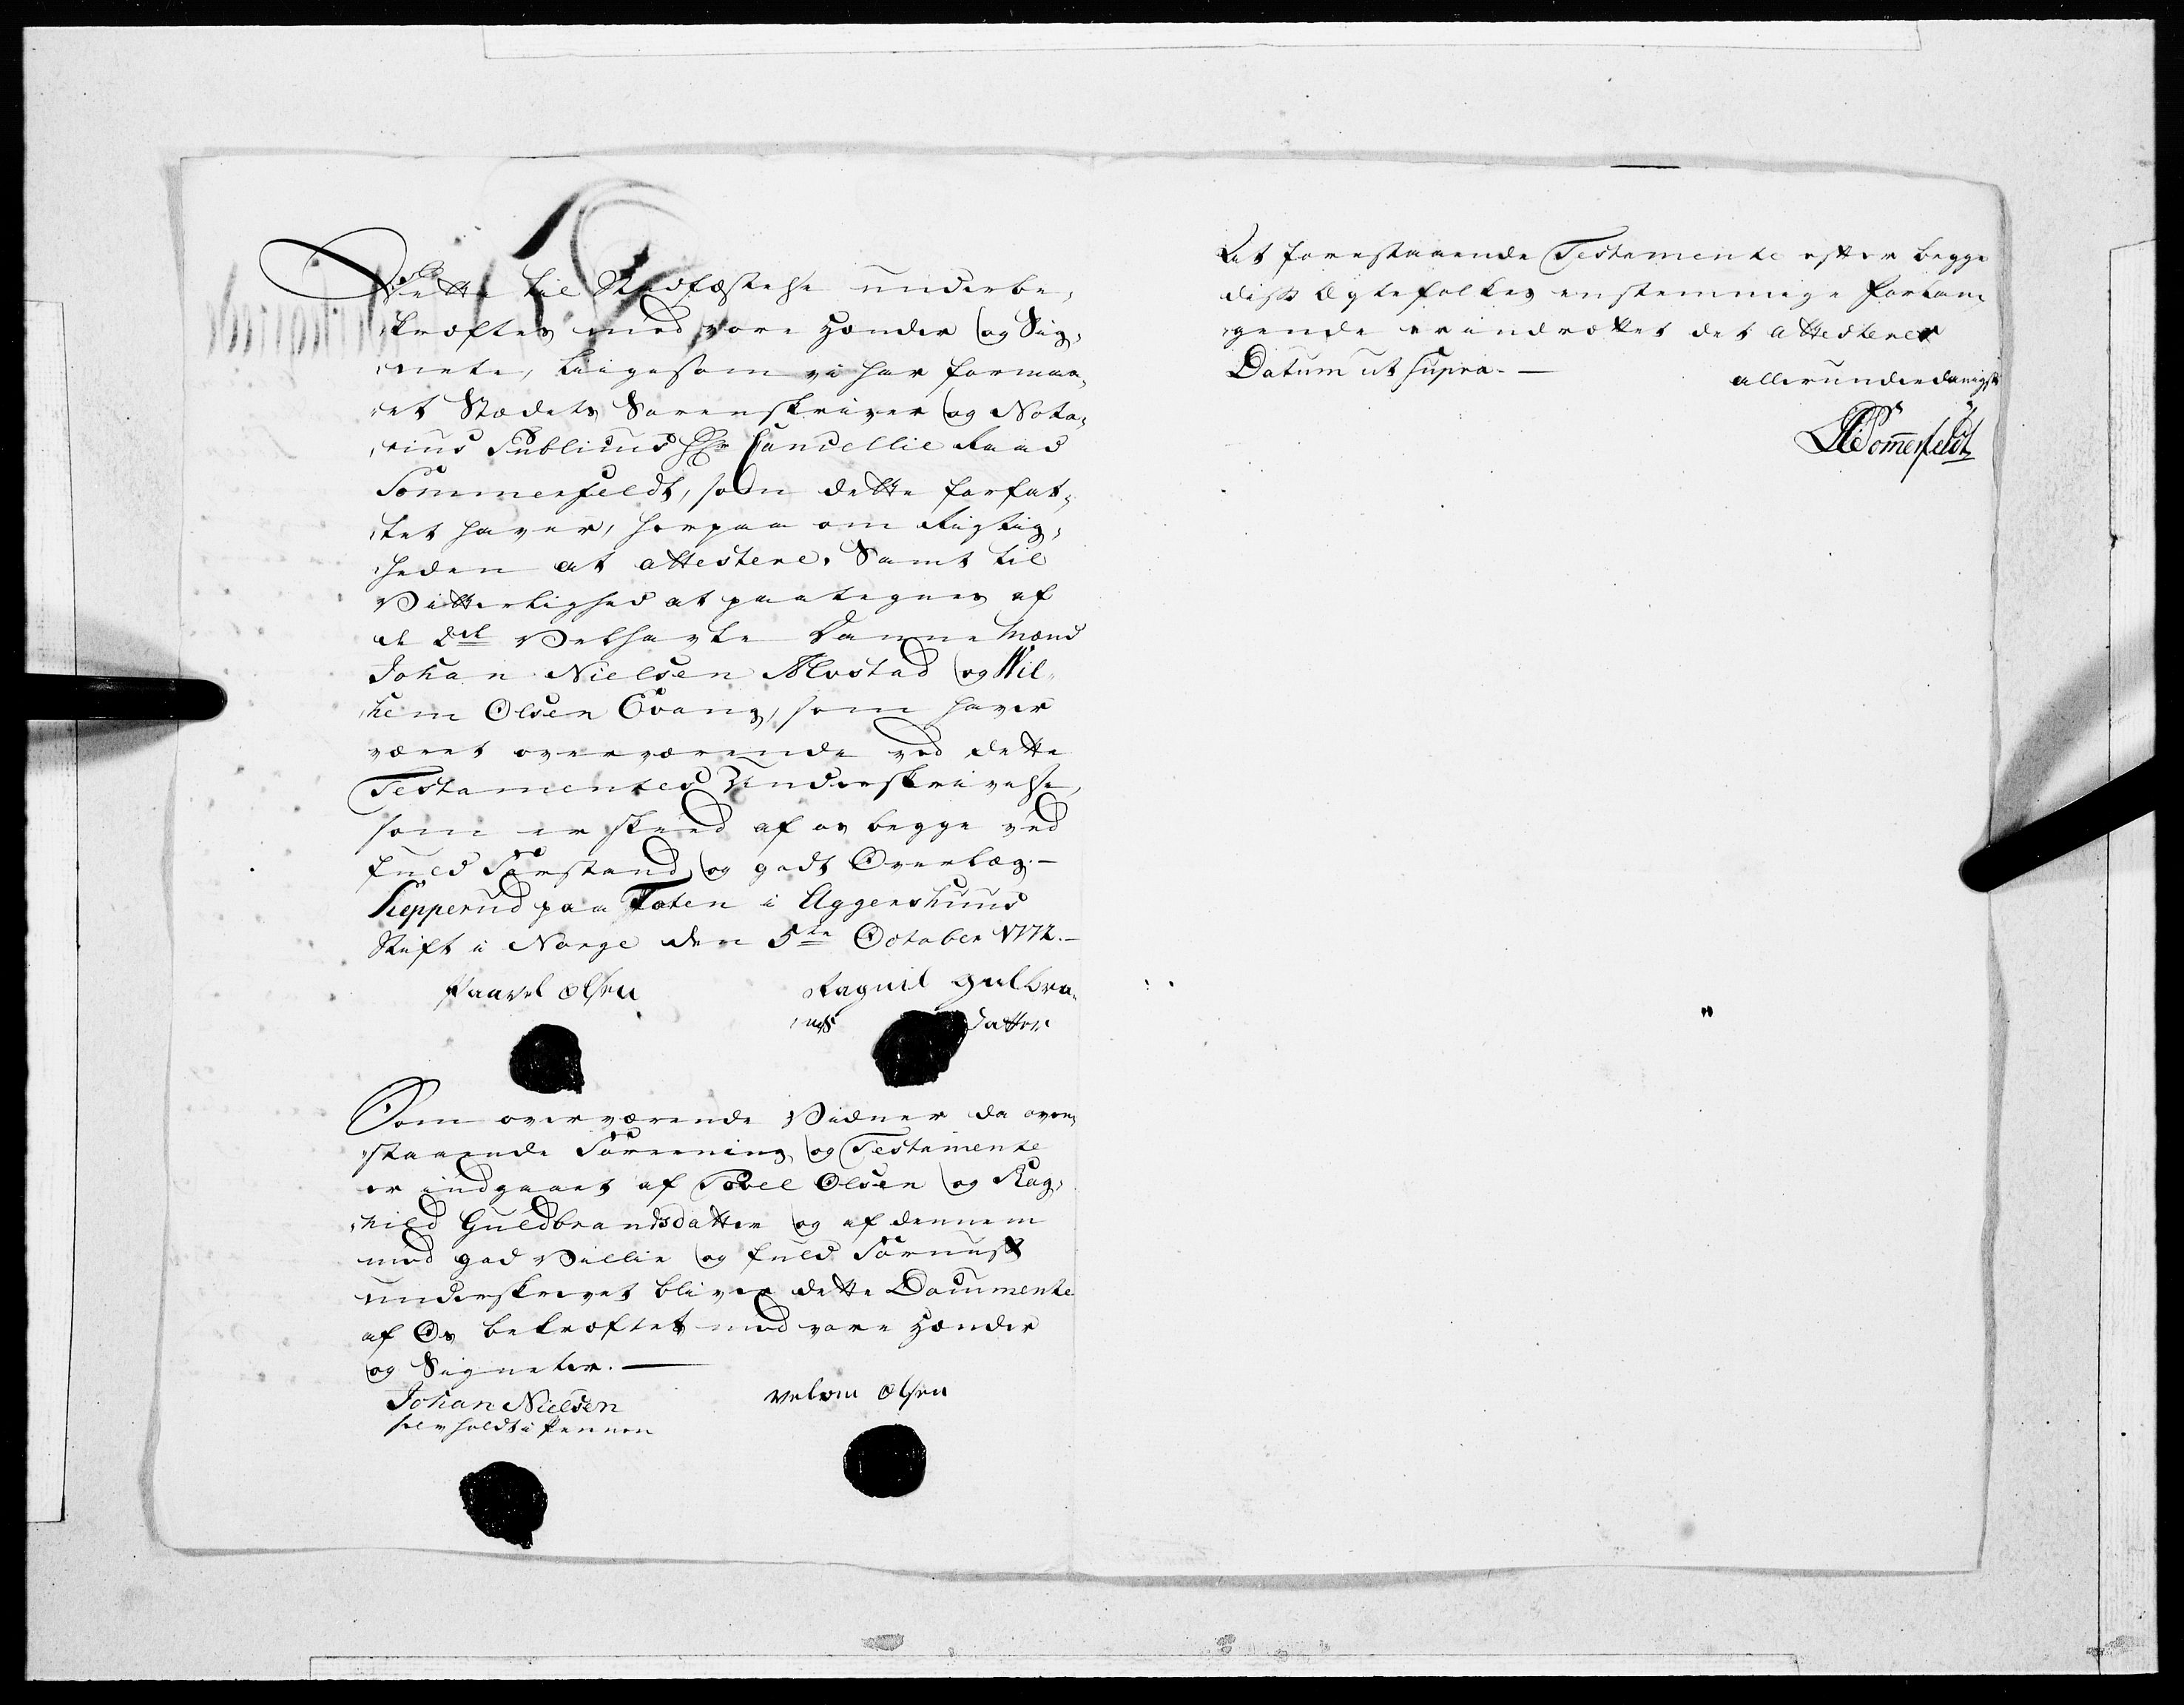 Dette til Stadfæstelse underbe-
kræftes med vore Hænder og Sig-
nete, ligesom vi har formaa-
et Stædets Sorenskriver og Nota-
rius Publicus Hr Cancellie Raad
Sommerfeldt, som dette forfat-
tet haver, herpaa om Rigtig-
heden at attestere. Samt til
Vitterlighed at paategnes af
de 2de Velhagte Danne Mænd
Johan Nielsen Alvstad og Wil-
helm Olsen Evang, som haver
været overværende ved dette
Testamentes Underskrivelse,
som er skeed af os begge ved
fuld Forstand og godt Overlæg.
Kepperud paa Toten i Aggershuus
Stift i Norge den 5te October 1772.
Paavel Olsen Ragnil Gulbra-
nds datter
Som overværende Vidner da oven-
staaende Foreening og Testamente
er indgaaet af Povel Olsen og Rag-
nild Guldbrandsdatter og af dennem
med god Villie og fuld Fornuft
underskrevet bliver dette Documente
af Os bekræftet med vore Hænder
og Signeter.
Johan Nielsen Velom Olsen
selv holdt i Pennen
At forestaaende Testamente efter begge
disse Ægtefolkes enstemmige Forlan-
gende er indrettet det attesteres
Datum ut supra. allerunderdanigst
Sommerfeldt